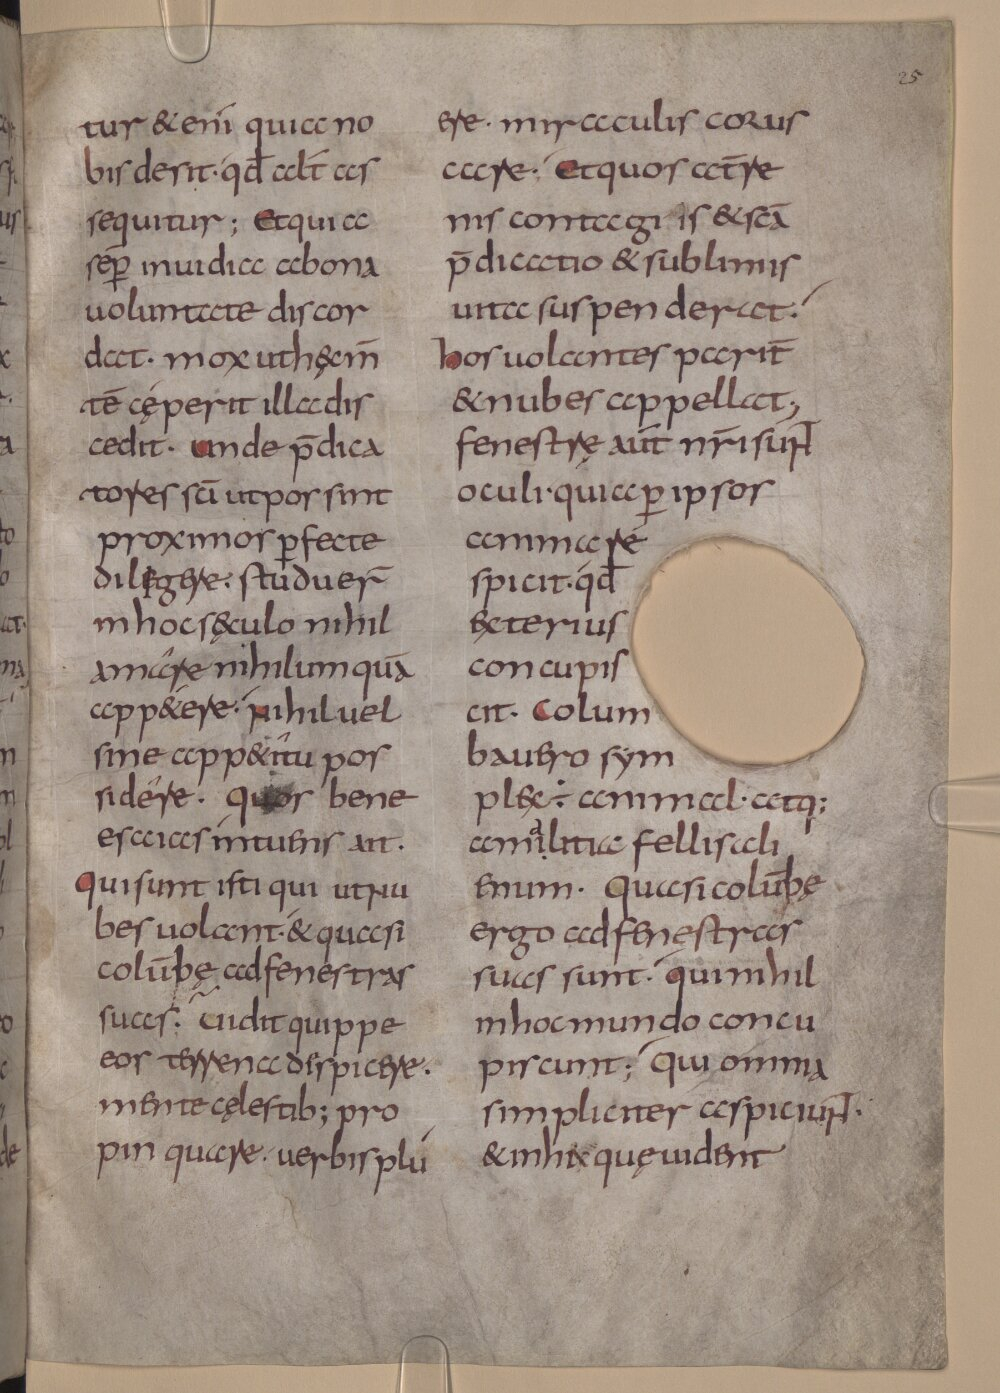 25
tur & eni quia no
bis desit · qd̄ alt̄ as
sequitur ; Et qui a
sep̄ inuidia a bona
uoluntate discor
dat · mox ut hęc m̄
tē cęperit illa dis
cedit · unde p̄dica
tores scī ut por sint
proximos p̄fecte
diligere · studuer̄
in hoc sęculo nihil
amare nihilum quā
app&ere · nihil uel
sine app&itu pos
sidere · Quos bene
esaias intuens ait ·
Qui sunt isti qui ut nu
bes uolant · & quasi
colūbę ad fenestras
suas · Uidit quippe
eos terrena despicere ·
mente cęlestib; pro
pinquare · uerbis plu
ere · miraculis corus
care · Et quos at̄re
nis contagiis & scā
p̄dicatio & sublimis
uita suspenderat ·
hos uolantes parit̄
& nubes appellat ;
fenestrę aut̄ nr̄i suн̄
oculi · quia p̄ ipsos
anima re
spicit · qd̄
exterius
concupis
cit · Colum
ba uero sym
plex ÷ animal · atq;
amalitia fellis ali
enum · Quasi colūbę
ergo ad fenęstras
suas sunt · qui nihil
in hoc mundo concu
piscunt ; Qui omnia
simpliciter aspiciun̄ ·
& in hix quę uident